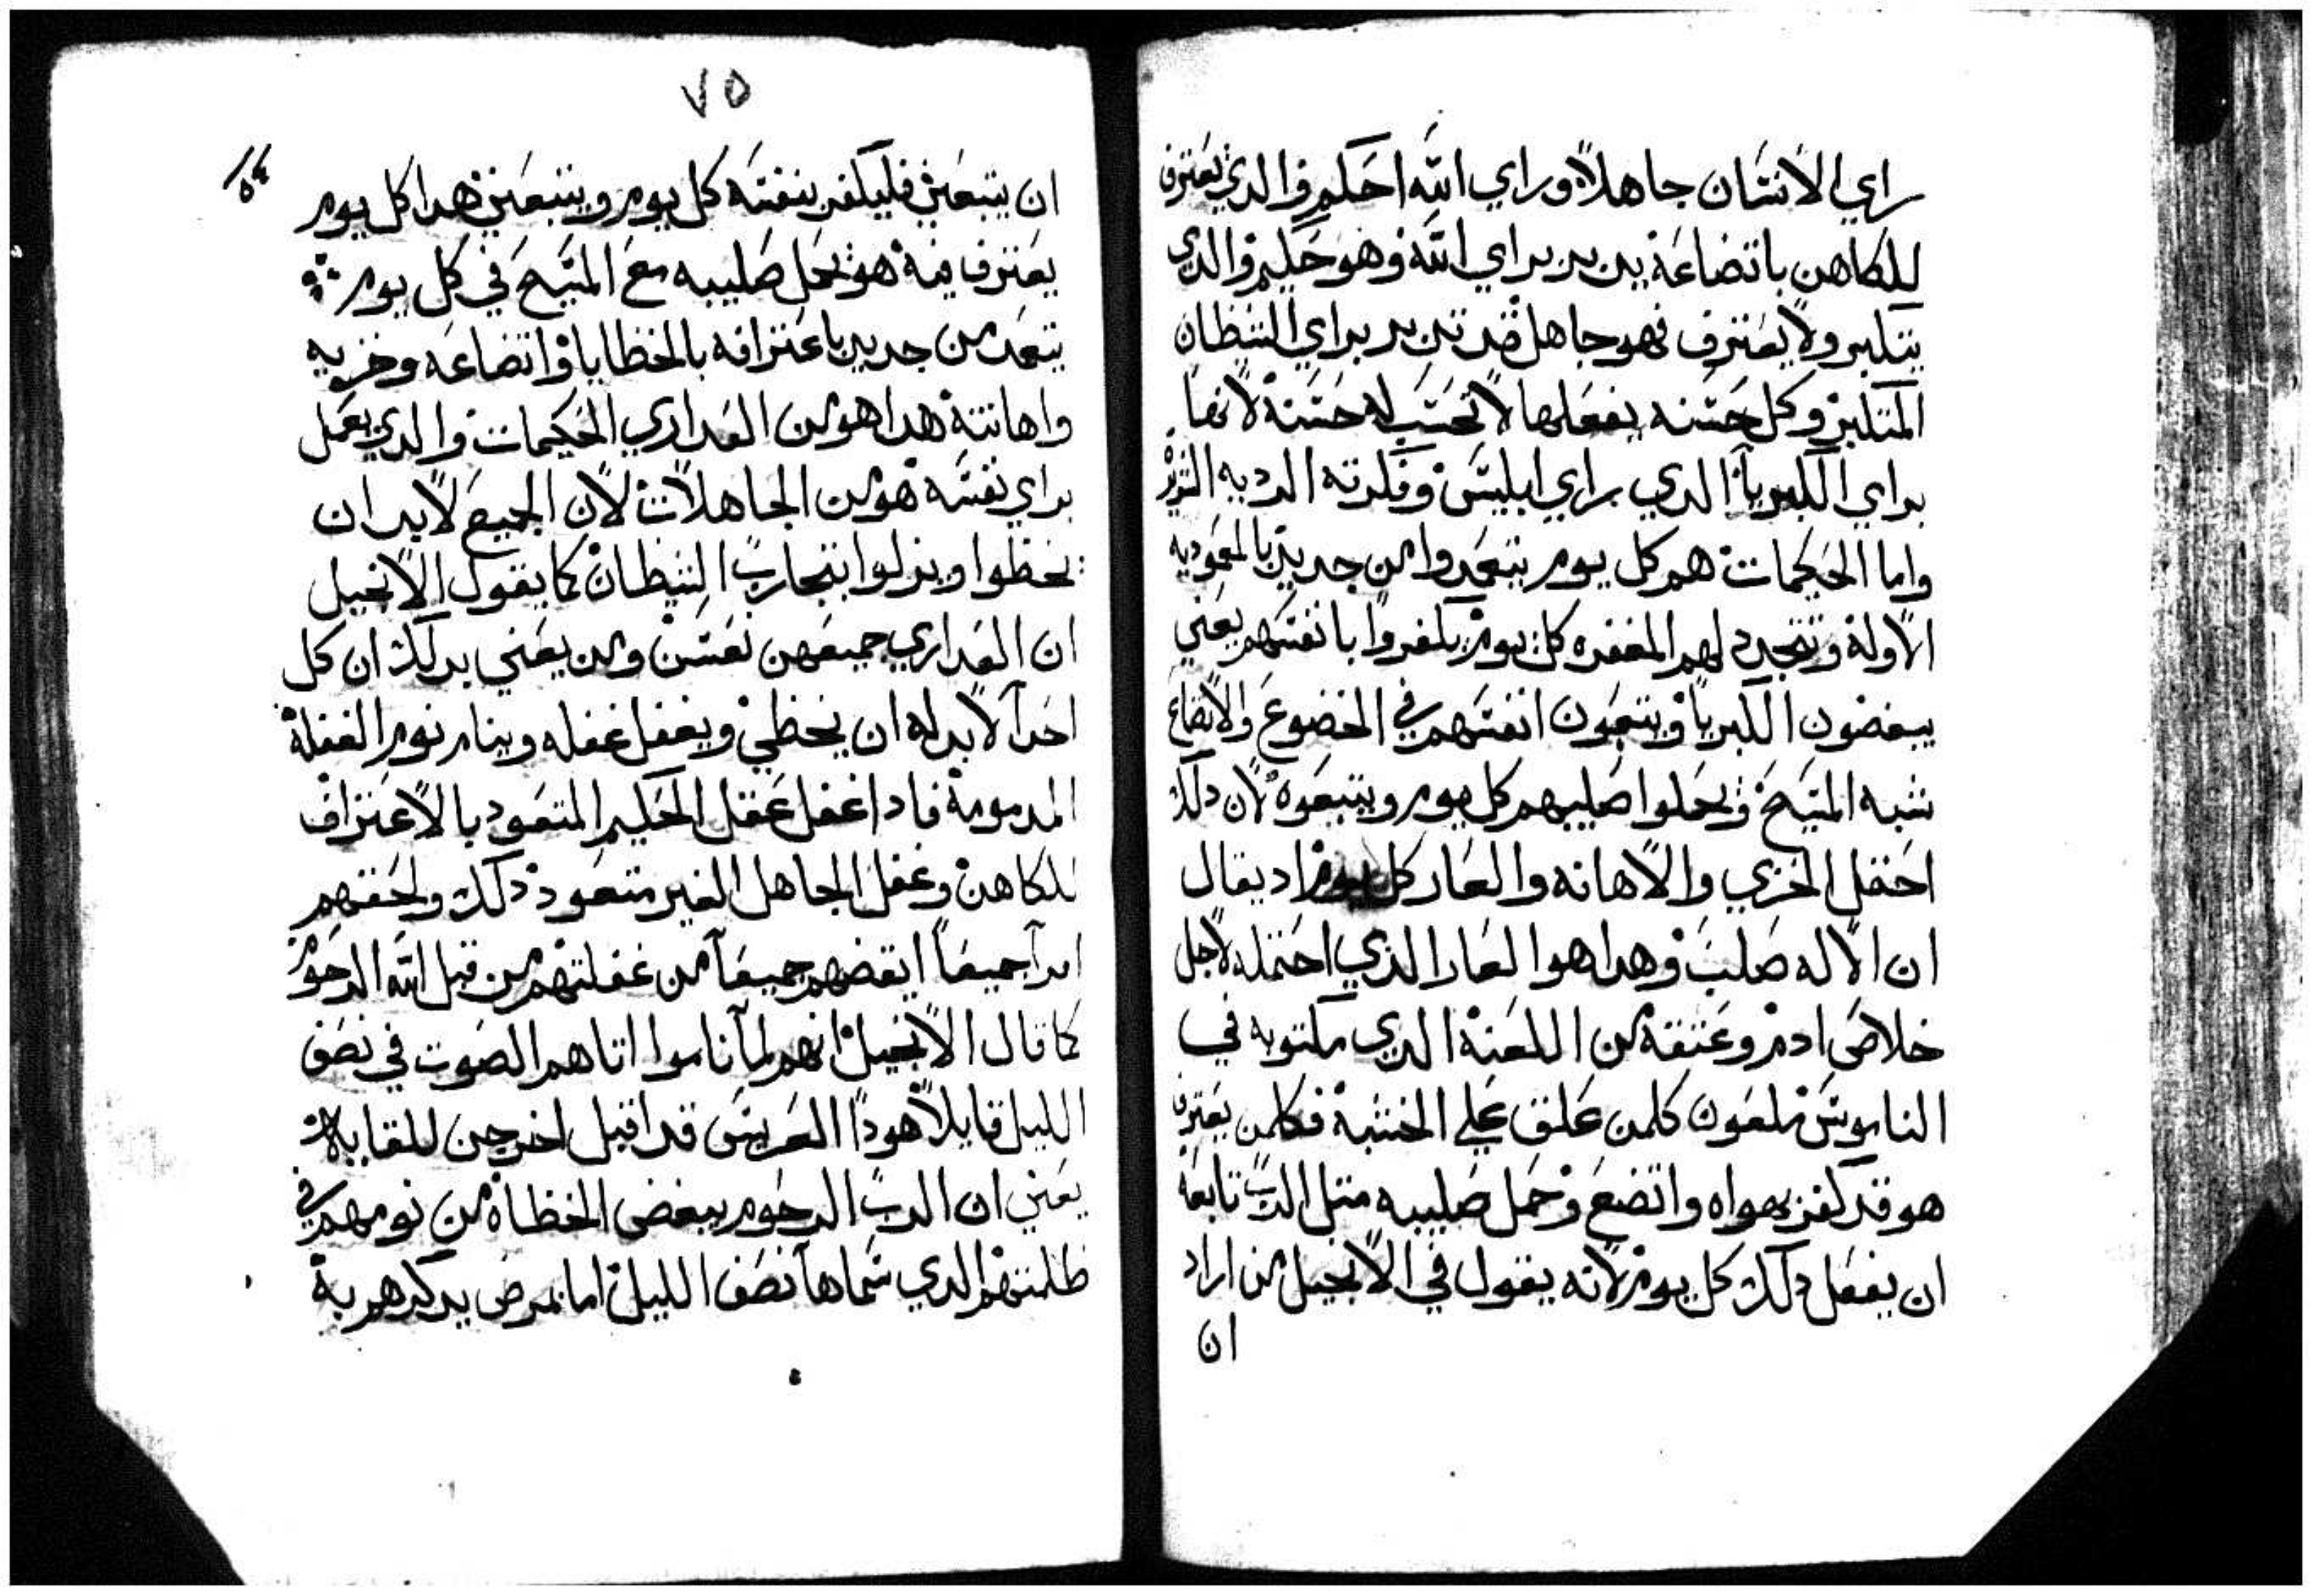 راي الانسان جاهلاً وراي الله احكم والذي يعترف
للكاهن باتضاعة يدبر براي الله وهو حكيم والدي
يتكبر ولا يعترف فهو جاهل قد تدبر براي الشيطان
المتكبر وكل حسنه يفعلها لا تحسب له حسنة لانها
براي الكبريا الدي براي ابليس وفكرته الرديه
واما الحكيمات هم كل يوم يتعمدوا من جديد بالمعموديه
الاولة وتتجدد لهم المغفره كل يوم يكفروا بانفسهم يعني
يبغضون الكبريا ويتعبون انفسهم في الخضوع والاتضاع
شبه المسيح ويحملوا صليبهم كل يوم ويتبعوه لان دلك
احتمل الخزي والاهانه والعار كل يوم اد يقال
ان الاله صلب وهدا هوا العار الذي احتمله لاجل
خلاص ادم وعتقة من اللعنة الدي مكتوبه في
الناموس ملعون كلمن علق علي الخشبة فكلمن يعترف
هو قد كفر بهواه واتضع وحمل صليبه مثل الرب تابعه
ان يفعل دلك كل يوم لانه يقول في الانجيل من اراد
ان
٧٥
٥٤
ان يتبعني فليكفر بنفسه كل يوم ويتبعني هدا كل يوم
يعترف فيه هو يحمل صليبه مع المسيح في كل يوم
يتعمد من جديد باعترافه بالخطايا واتضاعه وخزيه
واهانته هدا هو من العداري الحكيمات والدي يعمل
براي نفسه هو من الجاهلات لان الجميع لابد ان
يخطوا ويزلوا بتجارب الشيطان كما يقول الانجيل
ان العداري جميعهن نعسن ومن يعني بدلك ان كل
احداً لابد له ان يخطي ويغفل غفله وينام نوم الغفلة
المدمومة فادا غفل عقل الحكيم المتعود بالاعتراف
للكاهن وغفل الجاهل الغير متعود دلك ولحقتهم
جميعاً ايقضهم جميعاً من غفلتهم من قبل الله الرحوم
كما قال الانجيل انهم لما ناموا اتاهم الصوت في نصف
الليل قايلاً هودا العريس قد اقبل اخرجن للقابه
يعني ان الرب الرحوم يبغض الخطاة من نومهم في
ظلمتهم الدي سماها نصف الليل اما بمرض يدكرهم به